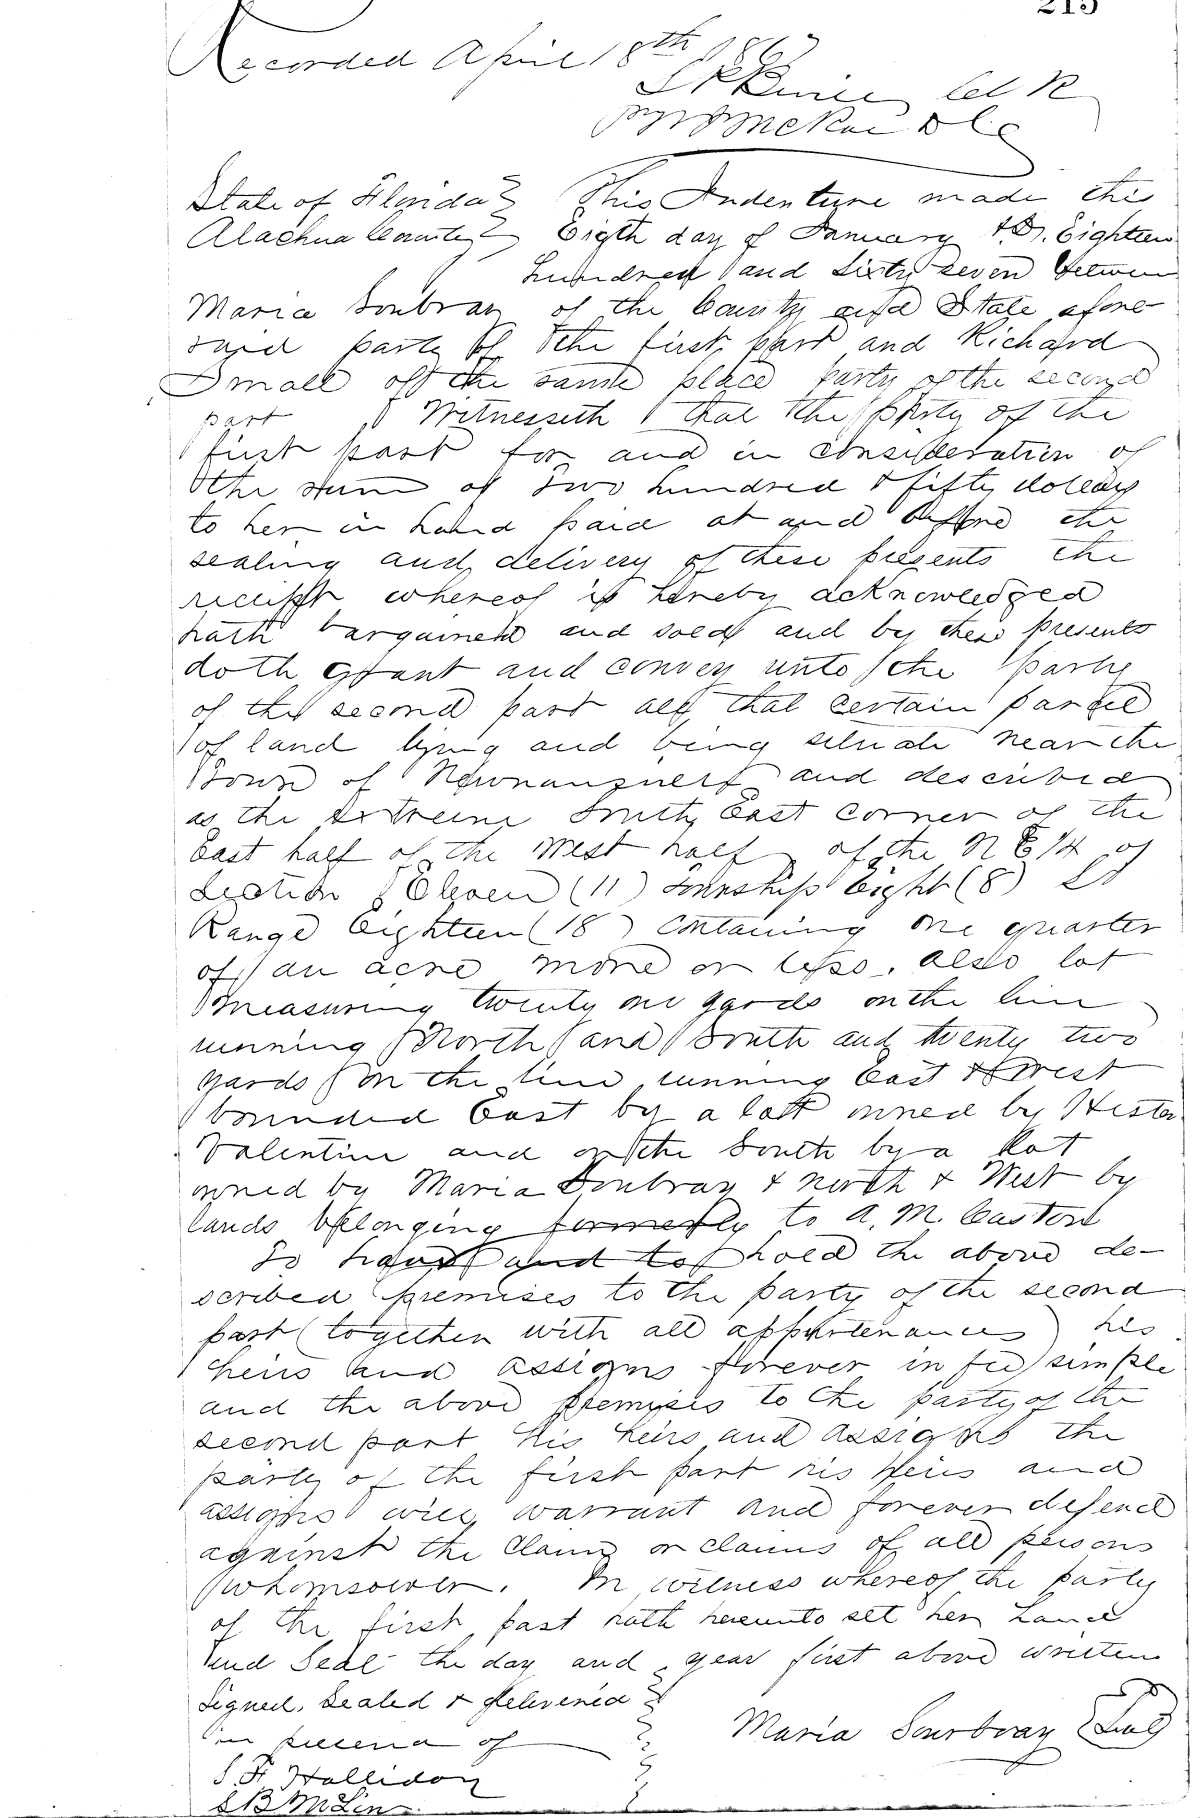 215
Recorded April 18th 1867
Clk
State of Florida } This Indenture made this
Alachua County } Eigth day of January A.D. Eighteen
hundred and Sixty seven between
Maria Sourbray of the County and State afore-
said party of the first part and Richard
Small of the same place party of the second
part Witnesseth that the party of the
first part for and in consideration of
the sum of Two hundred & fifty dollars
to her in hand paid at and before the
sealing and delivery of these presents the
receipt whereof is hereby acknowledged
hath bargained and sold and by these presents
doth grant and convey unto the party
of the second part all that certain parcel
of land lying and being situate near the
Town of Newnansville and described
as the extreme South East corner of the
East half of the West half of the N E 1/4 of
Section Eleven (11) Township Eight (8)
Range Eighteen (18) containing one quarter
of an acre more or less. also lot
measuring twenty one yards on the line
running North and South and twenty two
yards on the line running East & West
bounded East by a lott owned by Hester
Valentine and on the South by a lot
owned by Maria Sourbray & north & West by
lands belonging formerly to A. M. Caston
To have and to hold the above de-
scribed premises to the party of the second
part (together with all appurtenances) his
heirs and assigns forever in fee simple
and the above premises to the party of the
second part his heirs and assigns the
party of the first part his heirs and
assigns will warrant and forever defend
against the claim or claims of all persons
whomsoever. In witness whereof the party
of the first part hath hereunto set her hand
and Seal the day and year first above written
Signed, Sealed & delivered }
in presence of
Maria Sourbray {Seal}
S. F. Halliday
S B McLin